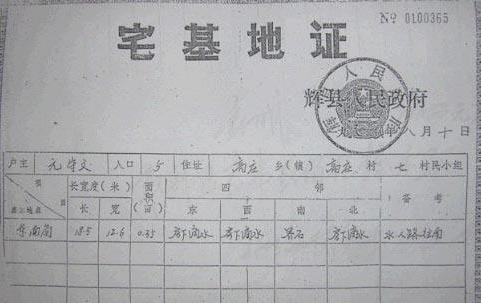 № 0100365
宅基地证
人民
辉县人民政府
年八月十日
户主 元 文 人口 5 住址 高庄 乡(镇) 高庄 村 七 村民小组
项目 长宽度(米) 面积(亩) 四邻 备考
长 宽 东 西 南 北
东南岗 18.5 12.6 0.35 滴水 滴水 界石 滴水 水人路往南